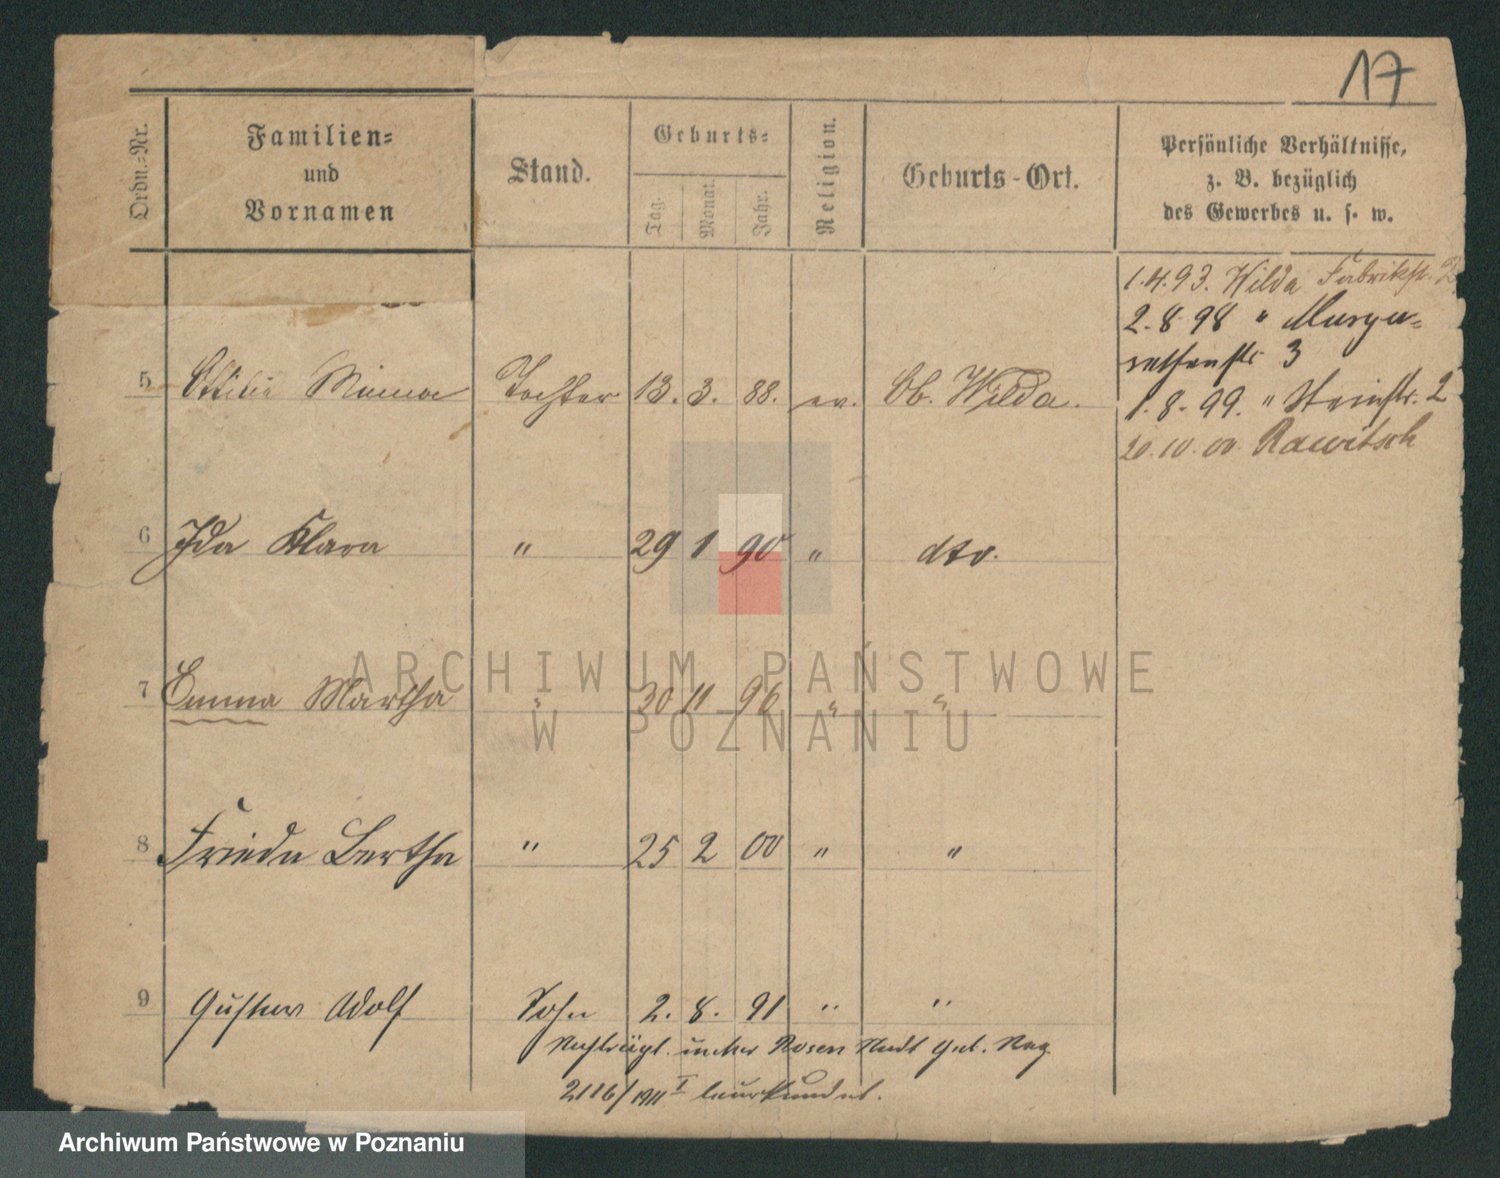 17
Ordn.=Nr.
Familien=
und
Vornamen
Stand.
Geburts=
Tag.
Monat.
Jahr.
Religion.
Geburts-Ort.
Persönliche Verhältnisse,
z. B. bezüglich
des Gewerbes u. s. w.
1.4.93. Wilda Fabrikstr. 2
2.8.98 " Marga=
rethenstr 3
5 Ottilie Minna Tochter 13. 3. 88. ev. Ob. Wilda.
1.8.99. " Steinstr. 2
20.10.00. Rawitsch
6 Ida Klara " 29 1 90 " dto.
7 Emma Martha " 30 11 96 " "
8 Frieda Bertha " 25 2 00 " "
9 Gustav Adolf Sohn 2. 8. 91 " "
Posen Stadt
2116/1911 I beurkundet.
ARCHIWUM PAŃSTWOWE
W POZNANIU
Archiwum Państwowe w Poznaniu